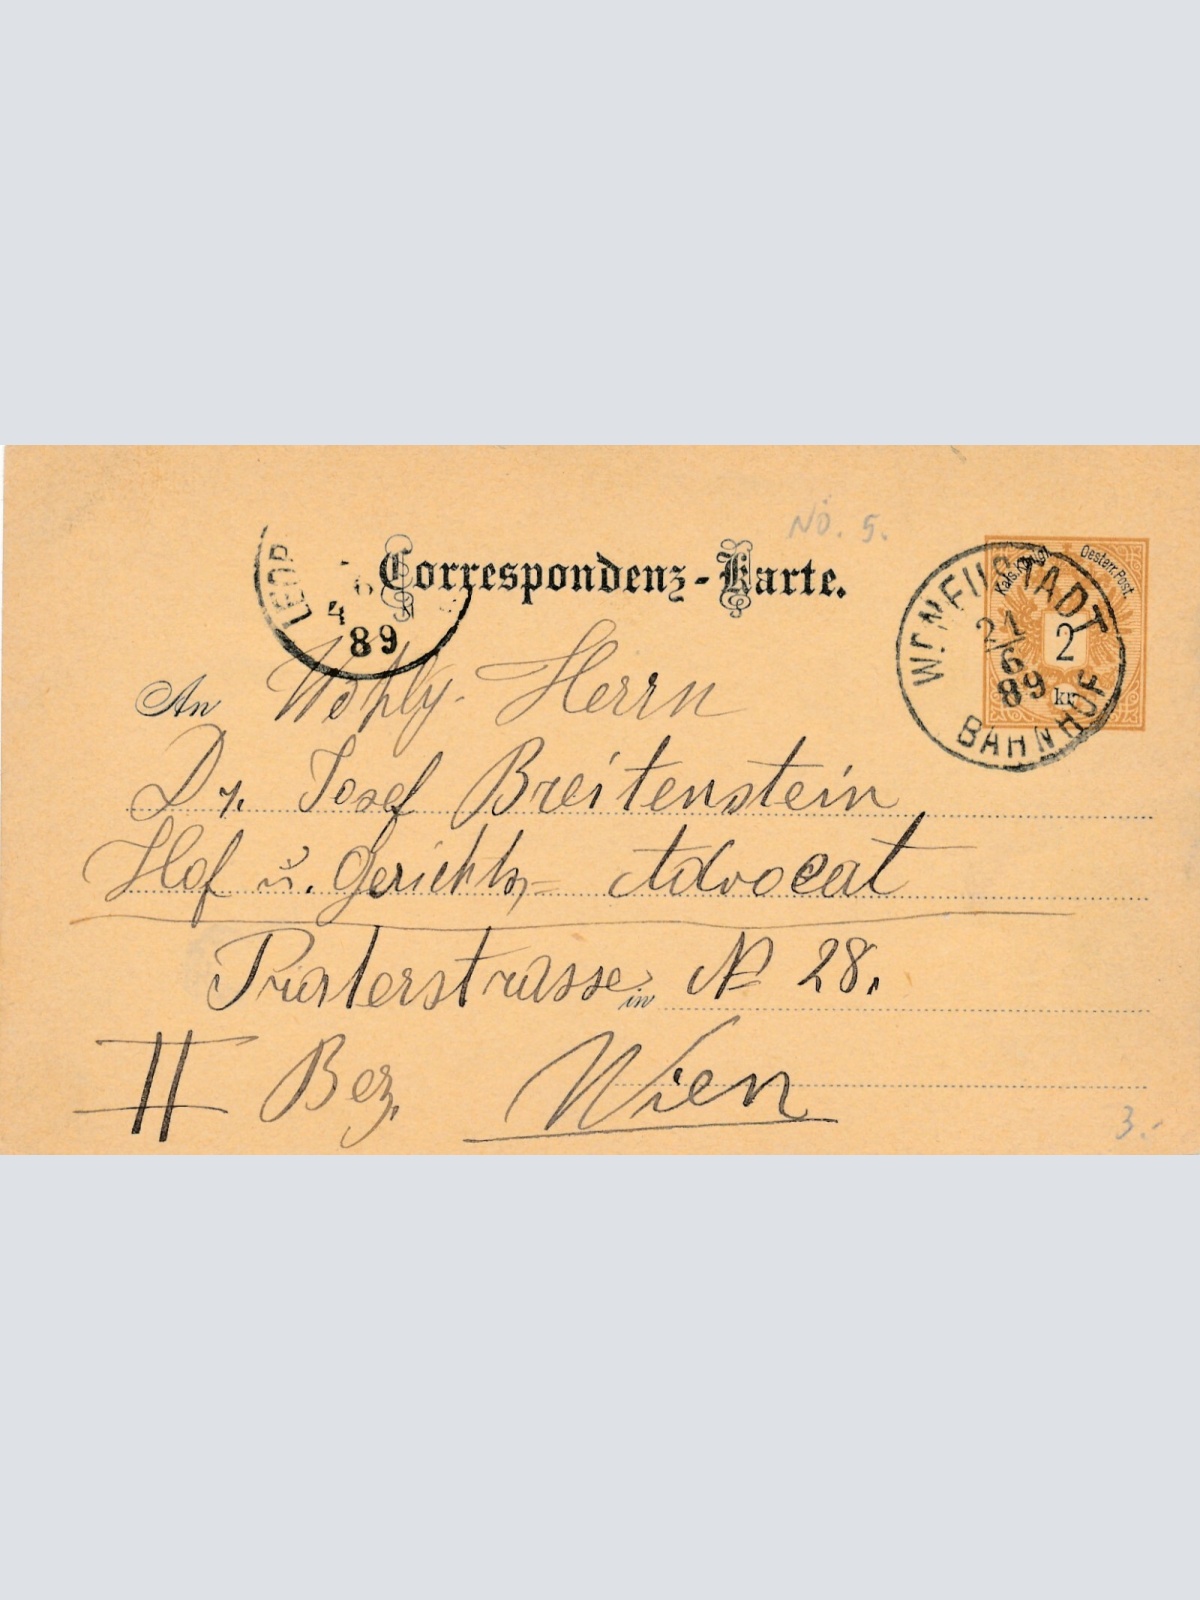 NÖ. 5.
Correspondenz-Karte.
Kais. Königl. Oesterr. Post.
2
kr
W. NEUSTADT
21
6
89
BAHNHOF
LEOP
4
89
An Wohlg. Herrn
Dr. Josef Breitenstein
Hof u. Gerichts= Advocat
Praterstrasse in № 28.
II Bez. Wien
3.-